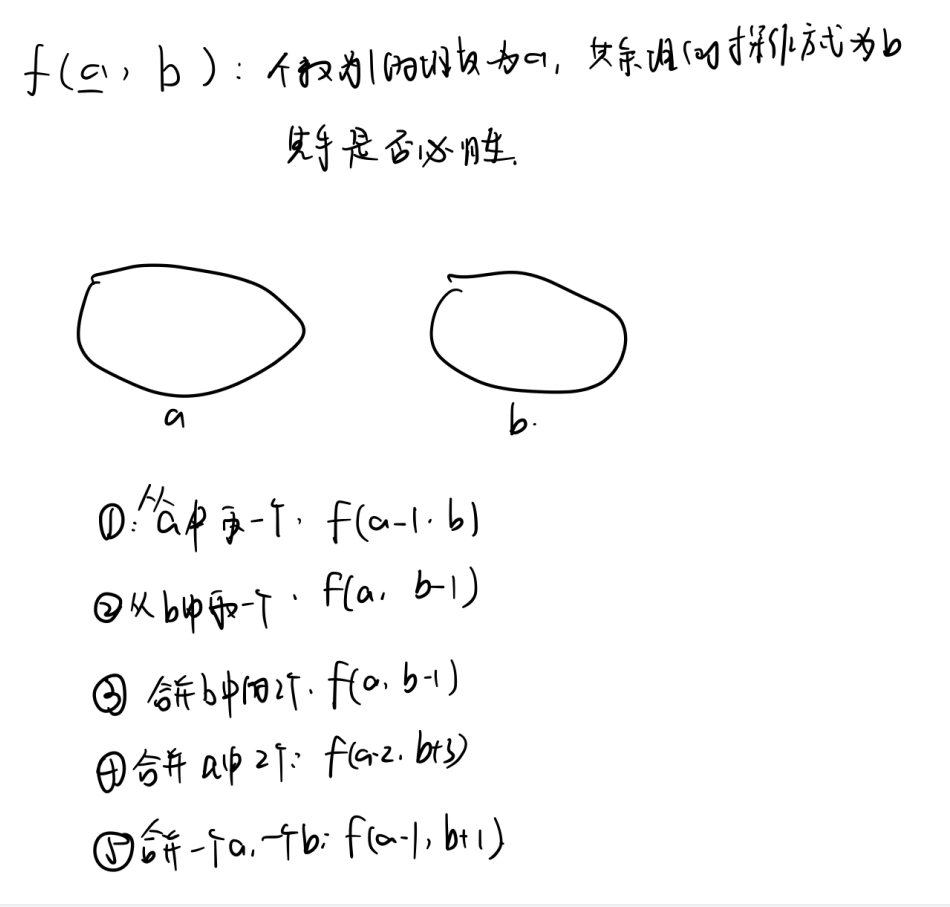 f(a, b): 个数为1的堆数为a, 其余堆的操作方式为b
先手是否必胜.
a
b.
①: 从a中取一个, f(a-1. b)
② 从b中取一个. f(a, b-1)
③ 合并b中的2个. f(a, b-1)
④ 合并a中2个: f(a-2. b+3)
⑤ 合并一个a, 一个b: f(a-1, b+1)